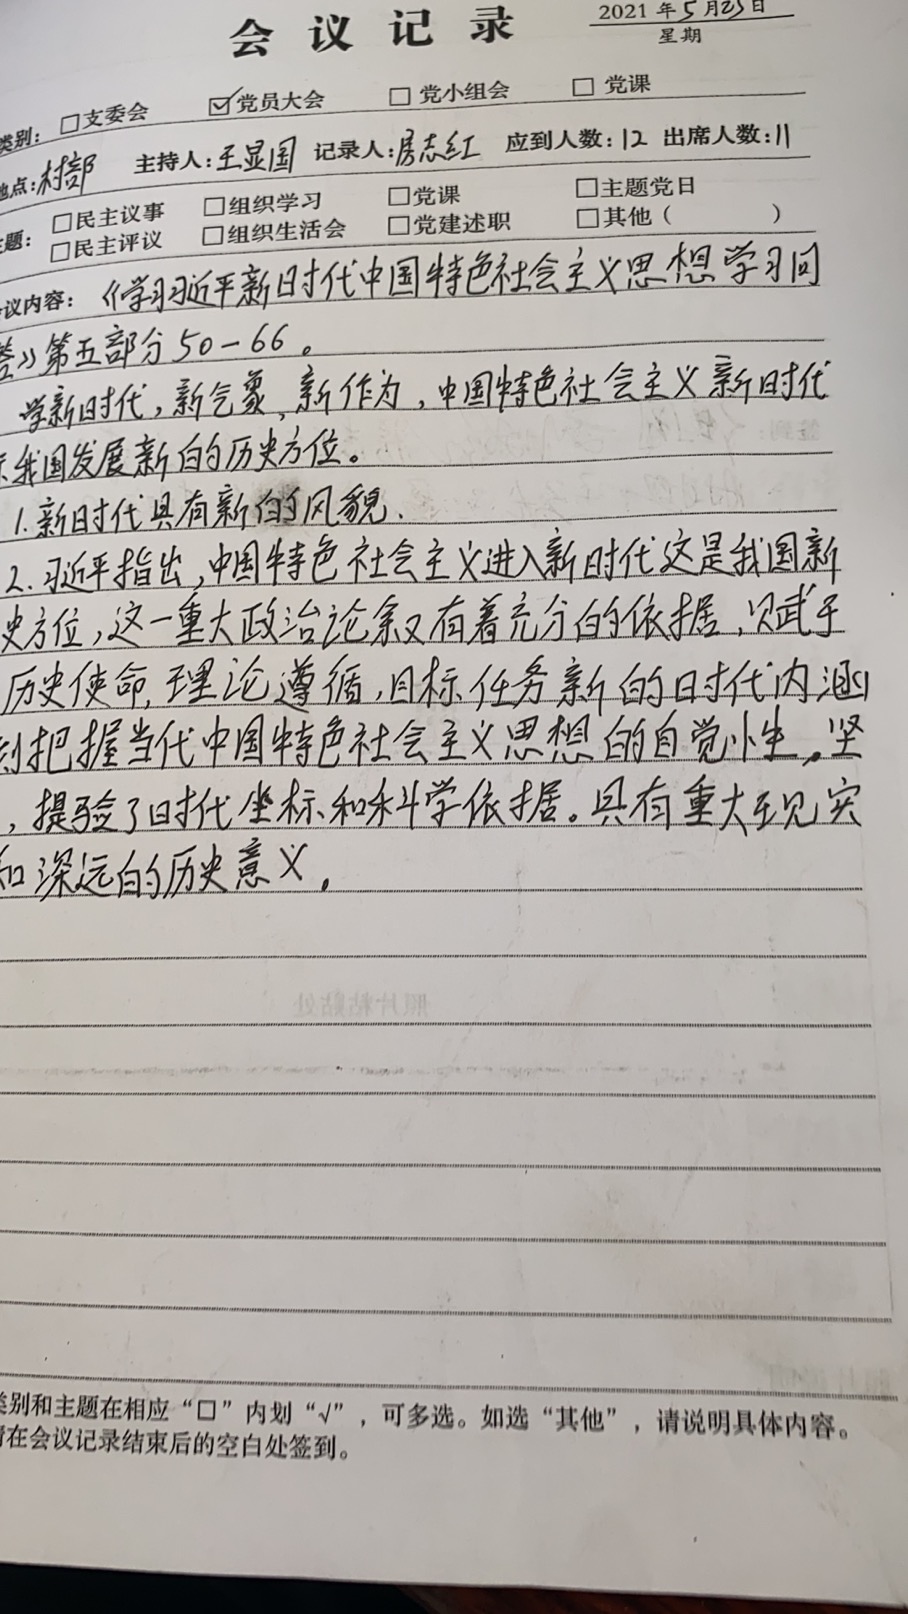 会议记录
2021年5月23日
星期
类别：□支委会 ☑党员大会 □党小组会 □党课
地点：村部 主持人：王显国 记录人：房志红 应到人数：12 出席人数：11
题： □民主议事 □组织学习 □党课 □主题党日
□民主评议 □组织生活会 □党建述职 □其他（ ）
议内容：《学习习近平新时代中国特色社会主义思想学习问
答》第五部分50-66。
学新时代，新气象、新作为，中国特色社会主义新时代
我国发展新的历史方位。
1.新时代具有新的风貌.
2.习近平指出，中国特色社会主义进入新时代这是我国新
史方位，这一重大政治论有着充分的依据，赋于
历史使命,理论遵循,目标任务新的时代内涵
刻把握当代中国特色社会主义思想的自觉小生。坚
，提验了时代坐标和科学依据。具有重大现实
和深远的历史意义。
照片粘贴处
类别和主题在相应“□”内划“√”，可多选。如选“其他”，请说明具体内容。
请在会议记录结束后的空白处签到。